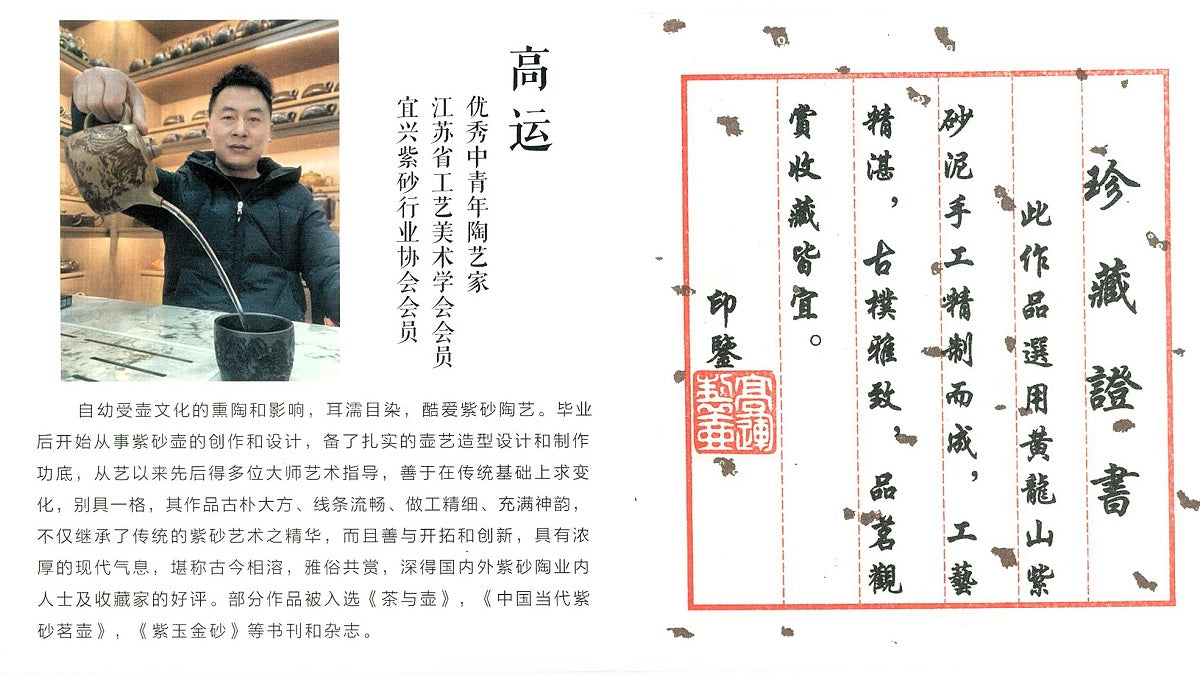 高运
优秀中青年陶艺家
江苏省工艺美术学会会员
宜兴紫砂行业协会会员
自幼受壶文化的熏陶和影响，耳濡目染，酷爱紫砂陶艺。毕业
后开始从事紫砂壶的创作和设计，备了扎实的壶艺造型设计和制作
功底，从艺以来先后得多位大师艺术指导，善于在传统基础上求变
化，别具一格，其作品古朴大方、线条流畅、做工精细、充满神韵，
不仅继承了传统的紫砂艺术之精华，而且善与开拓和创新，具有浓
厚的现代气息，堪称古今相溶，雅俗共赏，深得国内外紫砂陶业内
人士及收藏家的好评。部分作品被入选《茶与壶》，《中国当代紫
砂茗壶》，《紫玉金砂》等书刊和杂志。
珍藏證書
此作品選用黄龍山紫
砂泥手工精制而成，工藝
精湛，古樸雅致，品茗觀
賞收藏皆宜。
印鑒